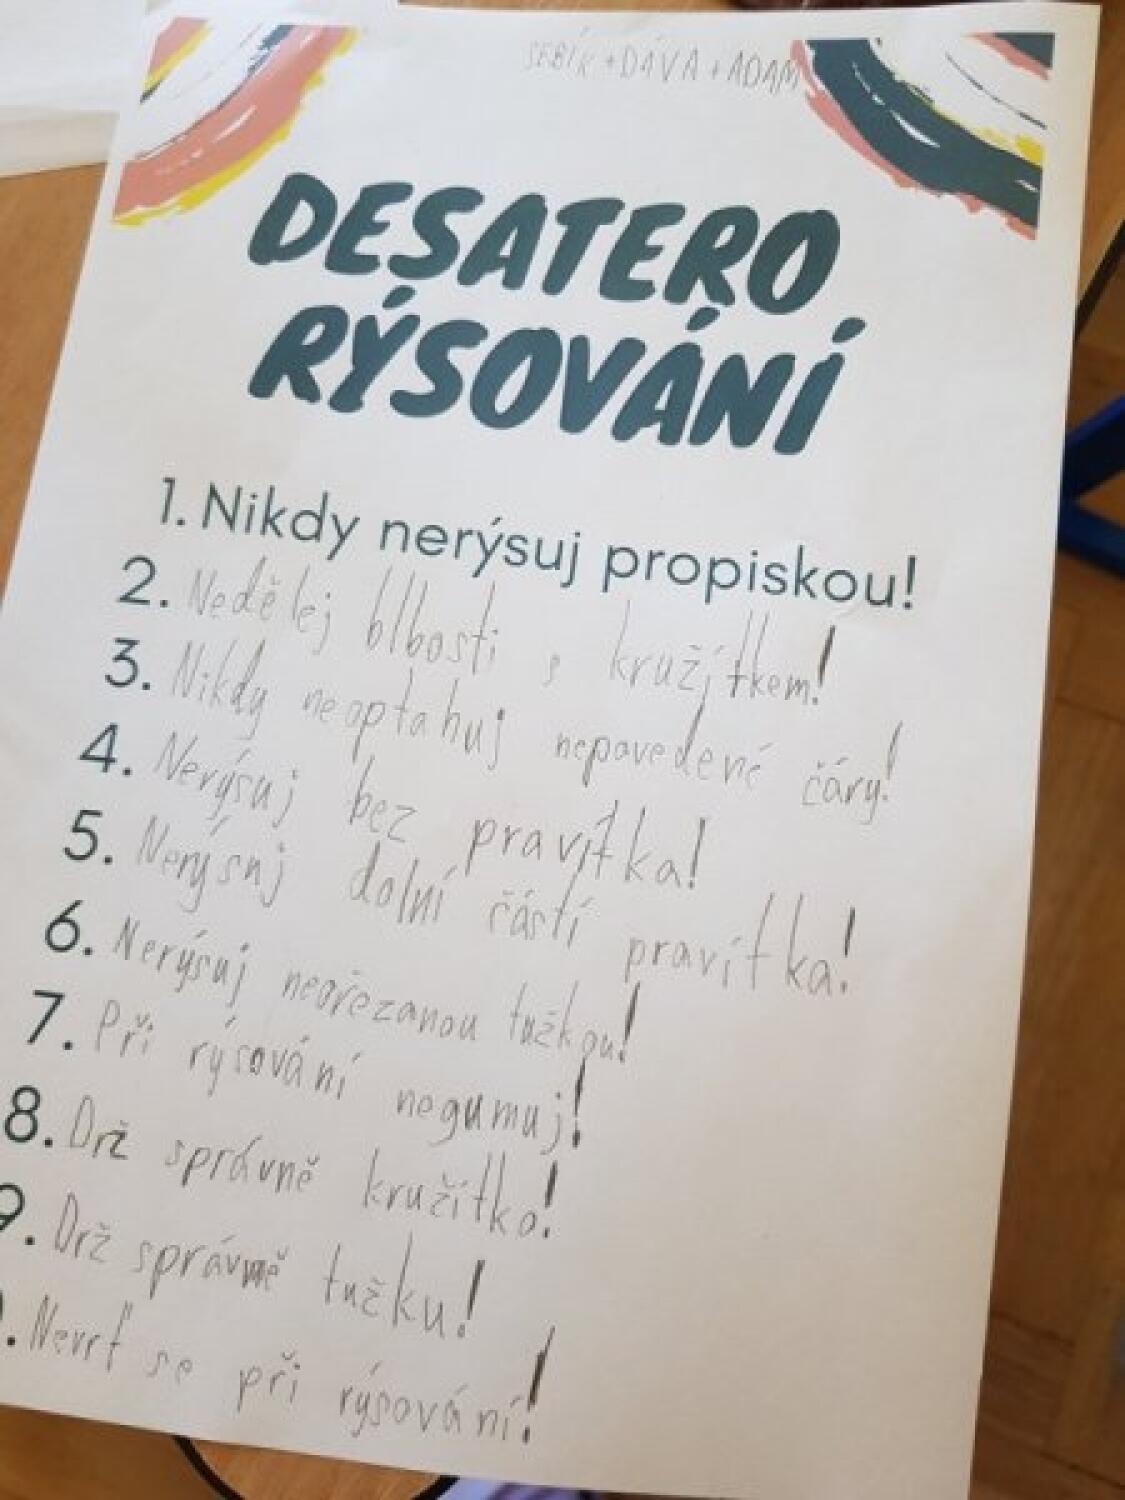 SEBÍK + DÁVA + ADAM
DESATERO
RÝSOVÁNÍ
1. Nikdy nerýsuj propiskou!
2. Nedělej blbosti s kružítkem!
3. Nikdy neoptahuj nepovedené čáry!
4. Nerýsuj bez pravítka!
5. Nerýsuj dolní částí pravítka!
6. Nerýsuj neořezanou tužkou!
7. Při rýsování negumuj!
8. Drž správně kružítko!
9. Drž správně tužku!
. Nevrť se při rýsování!